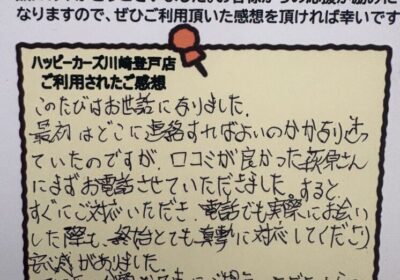 なりますので、ぜひご利用頂いた感想を頂ければ幸いです
ハッピーカーズ川崎登戸店
ご利用されたご感想
このたびはお世話になりました。
最初はどこに連絡すればよいのかかなり迷っ
ていたのですが、口コミが良かった萩原さん
にまずお電話させていただきました。すると
すぐにご対応いただき、電話でも実際にお会い
した際も、終始とても真摯に対応してくださり
安心感がありました